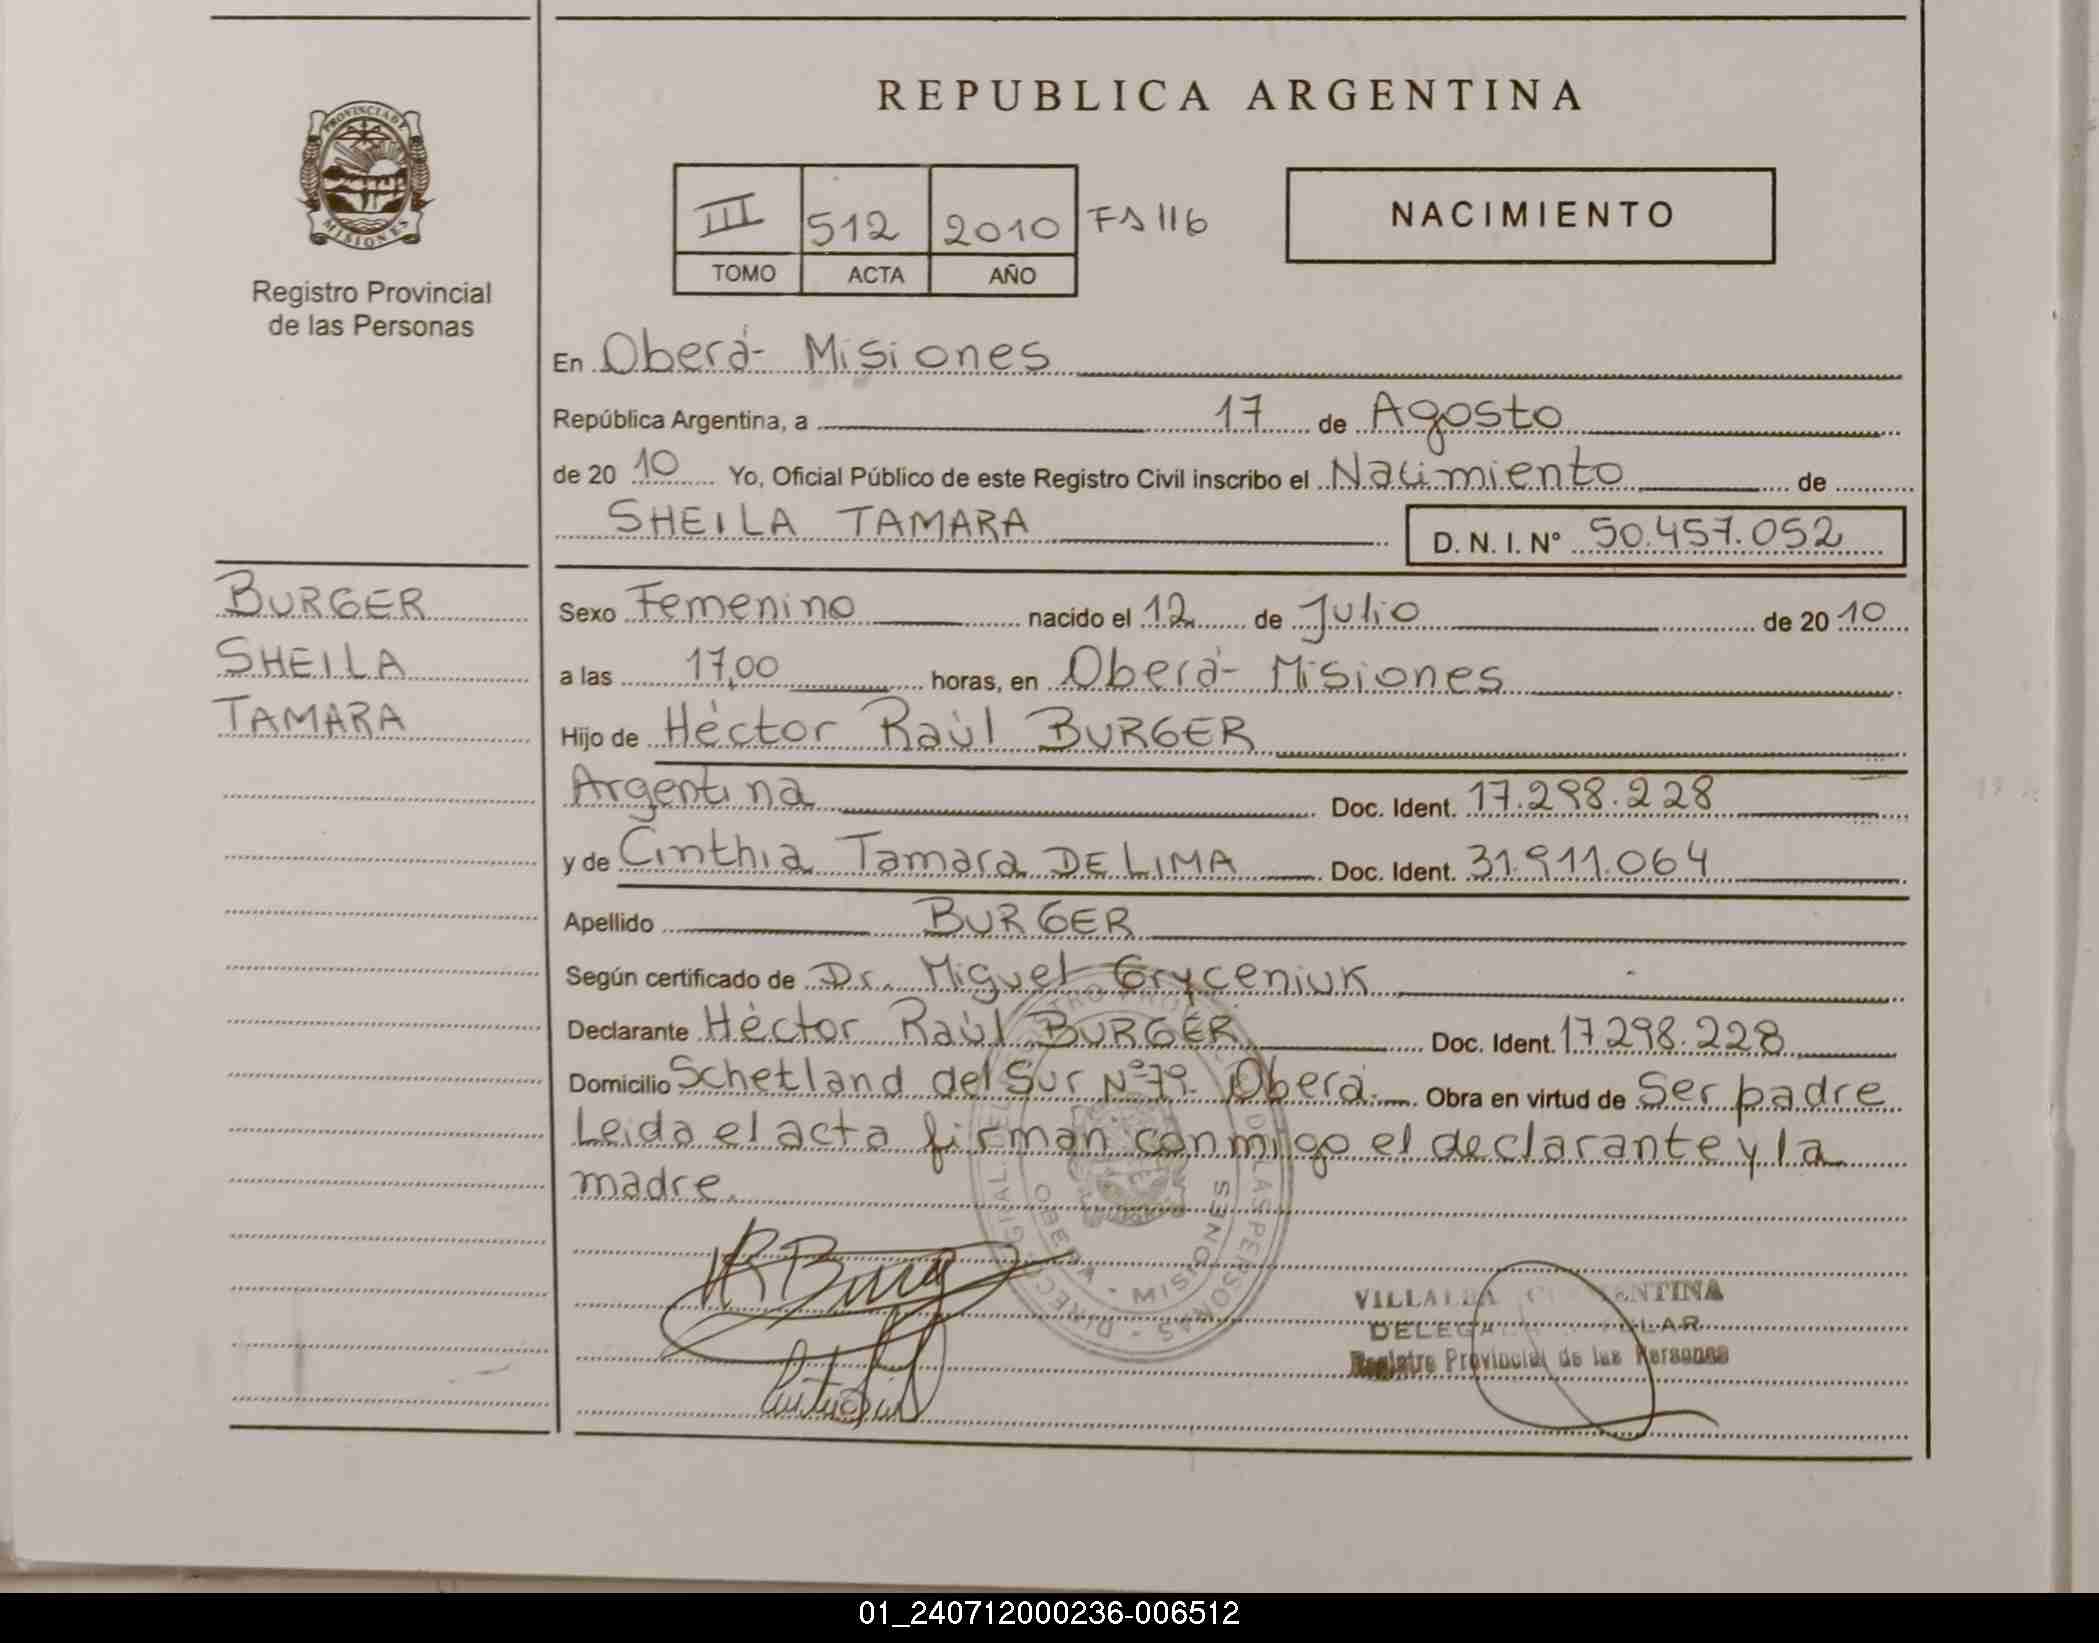 REPUBLICA ARGENTINA
PROVINCIA DE
MISIONES
Registro Provincial
de las Personas
III 512 2010 Fs 116
TOMO ACTA AÑO
NACIMIENTO
En Oberá- Misiones
República Argentina, a 17 de Agosto
de 2010 Yo, Oficial Público de este Registro Civil inscribo el Nacimiento de
SHEILA TAMARA D. N. I. N° 50.457.052
BURGER
SHEILA
TAMARA
Sexo Femenino nacido el 12 de Julio de 2010
a las 17,00 horas, en Oberá- Misiones
Hijo de Héctor Raúl BURGER
Argentina Doc. Ident. 17.298.228
y de Cinthia Tamara DE LIMA Doc. Ident. 31.911.064
Apellido BURGER
Según certificado de Dr. Miguel Gryceniuk
Declarante Héctor Raúl BURGER Doc. Ident. 17.298.228
Domicilio Schetland del Sur N°79. Oberá. Obra en virtud de Ser padre
Leida el acta firman conmigo el declarante y la
madre.
OBERA - MISIONES
DE LAS PERSONAS
DELEGADA
Registro Provincial de las Personas
01_240712000236-006512